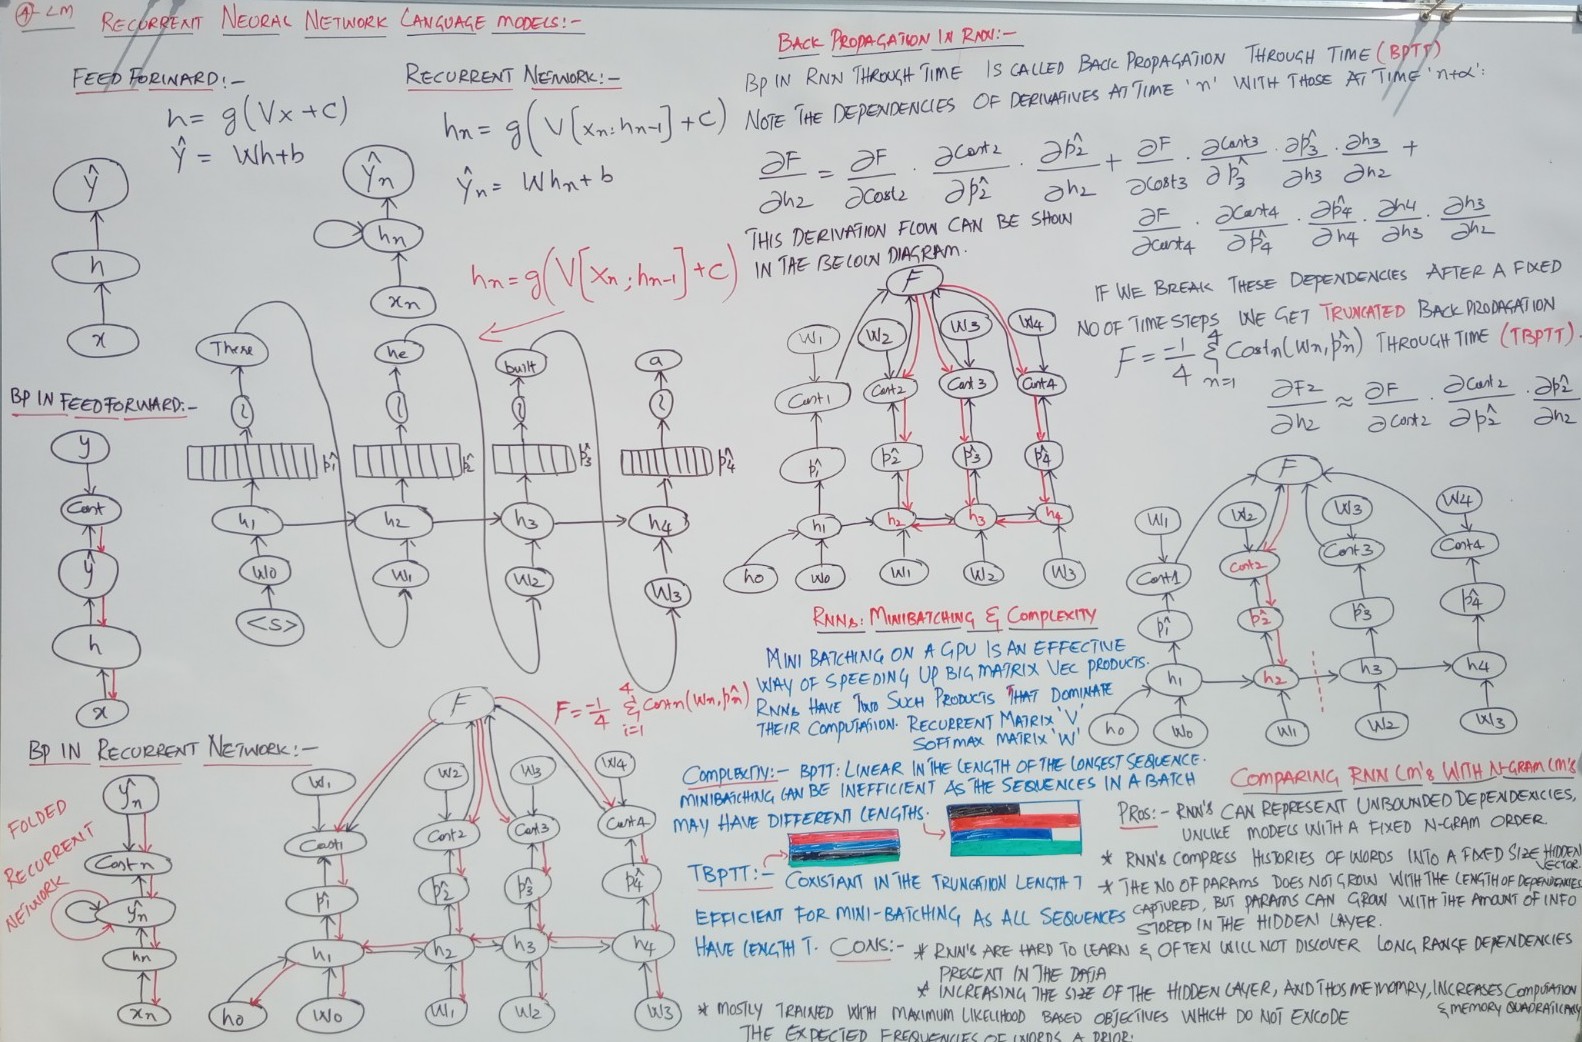 ④ LM
RECURRENT NEURAL NETWORK LANGUAGE MODELS:-
FEED FORWARD:-
h= g(Vx+c)
ŷ = Wh+b
ŷ
h
x
RECURRENT NETWORK:-
hn= g(V[xn;hn-1]+c)
ŷn= Whn+b
ŷn
hn
xn
hn=g(V[xn;hn-1]+c)
There
he
built
a
p̂1
p̂2
p̂3
p̂4
h1
h2
h3
h4
w0
w1
w2
w3
<s>
BP IN FEEDFORWARD:-
y
Cost
ŷ
h
x
BP IN RECURRENT NETWORK:-
FOLDED
RECURRENT
NETWORK
ŷn
Cost n
ŷn
hn
xn
F
F= -1/4 Σ4 i=1 Costn(wn,p̂n)
w1
w2
w3
w4
Cost1
Cost2
Cost3
Cost4
p̂1
p̂2
p̂3
p̂4
h1
h2
h3
h4
h0
w0
w1
w2
w3
BACK PROPAGATION IN RNN:-
BP IN RNN THROUGH TIME IS CALLED BACK PROPAGATION THROUGH TIME (BPTT)
NOTE THE DEPENDENCIES OF DERIVATIVES AT TIME 'n' WITH THOSE AT TIME 'n+α':
∂F/∂h2 = ∂F/∂cost2 . ∂cost2/∂p̂2 . ∂p̂2/∂h2 + ∂F/∂cost3 . ∂cost3/∂p̂3 . ∂p̂3/∂h3 . ∂h3/∂h2 +
∂F/∂cost4 . ∂cost4/∂p̂4 . ∂p̂4/∂h4 . ∂h4/∂h3 . ∂h3/∂h2
THIS DERIVATION FLOW CAN BE SHOWN
IN THE BELOW DIAGRAM.
F
w1
w2
w3
w4
Cost1
Cost2
Cost3
Cost4
p̂1
p̂2
p̂3
p̂4
h1
h2
h3
h4
h0
w0
w1
w2
w3
IF WE BREAK THESE DEPENDENCIES AFTER A FIXED
NO OF TIME STEPS WE GET TRUNCATED BACK PROPAGATION
THROUGH TIME (TBPTT).
F= -1/4 Σ4 n=1 Costn(wn,p̂n)
∂F2/∂h2 ≈ ∂F/∂cost2 . ∂cost2/∂p̂2 . ∂p̂2/∂h2
F
w1
w2
w3
w4
Cost1
Cost2
Cost3
Cost4
p̂1
p̂2
p̂3
p̂4
h1
h2
h3
h4
h0
w0
w1
w2
w3
RNNs: MINIBATCHING & COMPLEXITY
MINI BATCHING ON A GPU IS AN EFFECTIVE
WAY OF SPEEDING UP BIG MATRIX VEC PRODUCTS.
RNNs HAVE TWO SUCH PRODUCTS THAT DOMINATE
THEIR COMPUTATION. RECURRENT MATRIX 'V'
SOFTMAX MATRIX 'W'
COMPLEXITY:- BPTT: LINEAR IN THE LENGTH OF THE LONGEST SEQUENCE.
MINIBATCHING CAN BE INEFFICIENT AS THE SEQUENCES IN A BATCH
MAY HAVE DIFFERENT LENGTHS.
TBPTT:- CONSTANT IN THE TRUNCATION LENGTH T
EFFICIENT FOR MINI-BATCHING AS ALL SEQUENCES
HAVE LENGTH T.
COMPARING RNN LM'S WITH N-GRAM LM'S
PROS:- RNN'S CAN REPRESENT UNBOUNDED DEPENDENCIES,
UNLIKE MODELS WITH A FIXED N-GRAM ORDER.
* RNN'S COMPRESS HISTORIES OF WORDS INTO A FIXED SIZE HIDDEN VECTOR.
* THE NO OF PARAMS DOES NOT GROW WITH THE LENGTH OF DEPENDENCIES
CAPTURED, BUT PARAMS CAN GROW WITH THE AMOUNT OF INFO
STORED IN THE HIDDEN LAYER.
CONS:- * RNN'S ARE HARD TO LEARN & OFTEN WILL NOT DISCOVER LONG RANGE DEPENDENCIES
PRESENT IN THE DATA
* INCREASING THE SIZE OF THE HIDDEN LAYER, AND THUS MEMOMRY, INCREASES COMPUTATION
& MEMORY QUADRATICALLY
* MOSTLY TRAINED WITH MAXIMUM LIKELIHOOD BASED OBJECTIVES WHICH DO NOT ENCODE
THE EXPECTED FREQUENCIES OF WORDS A PRIORI